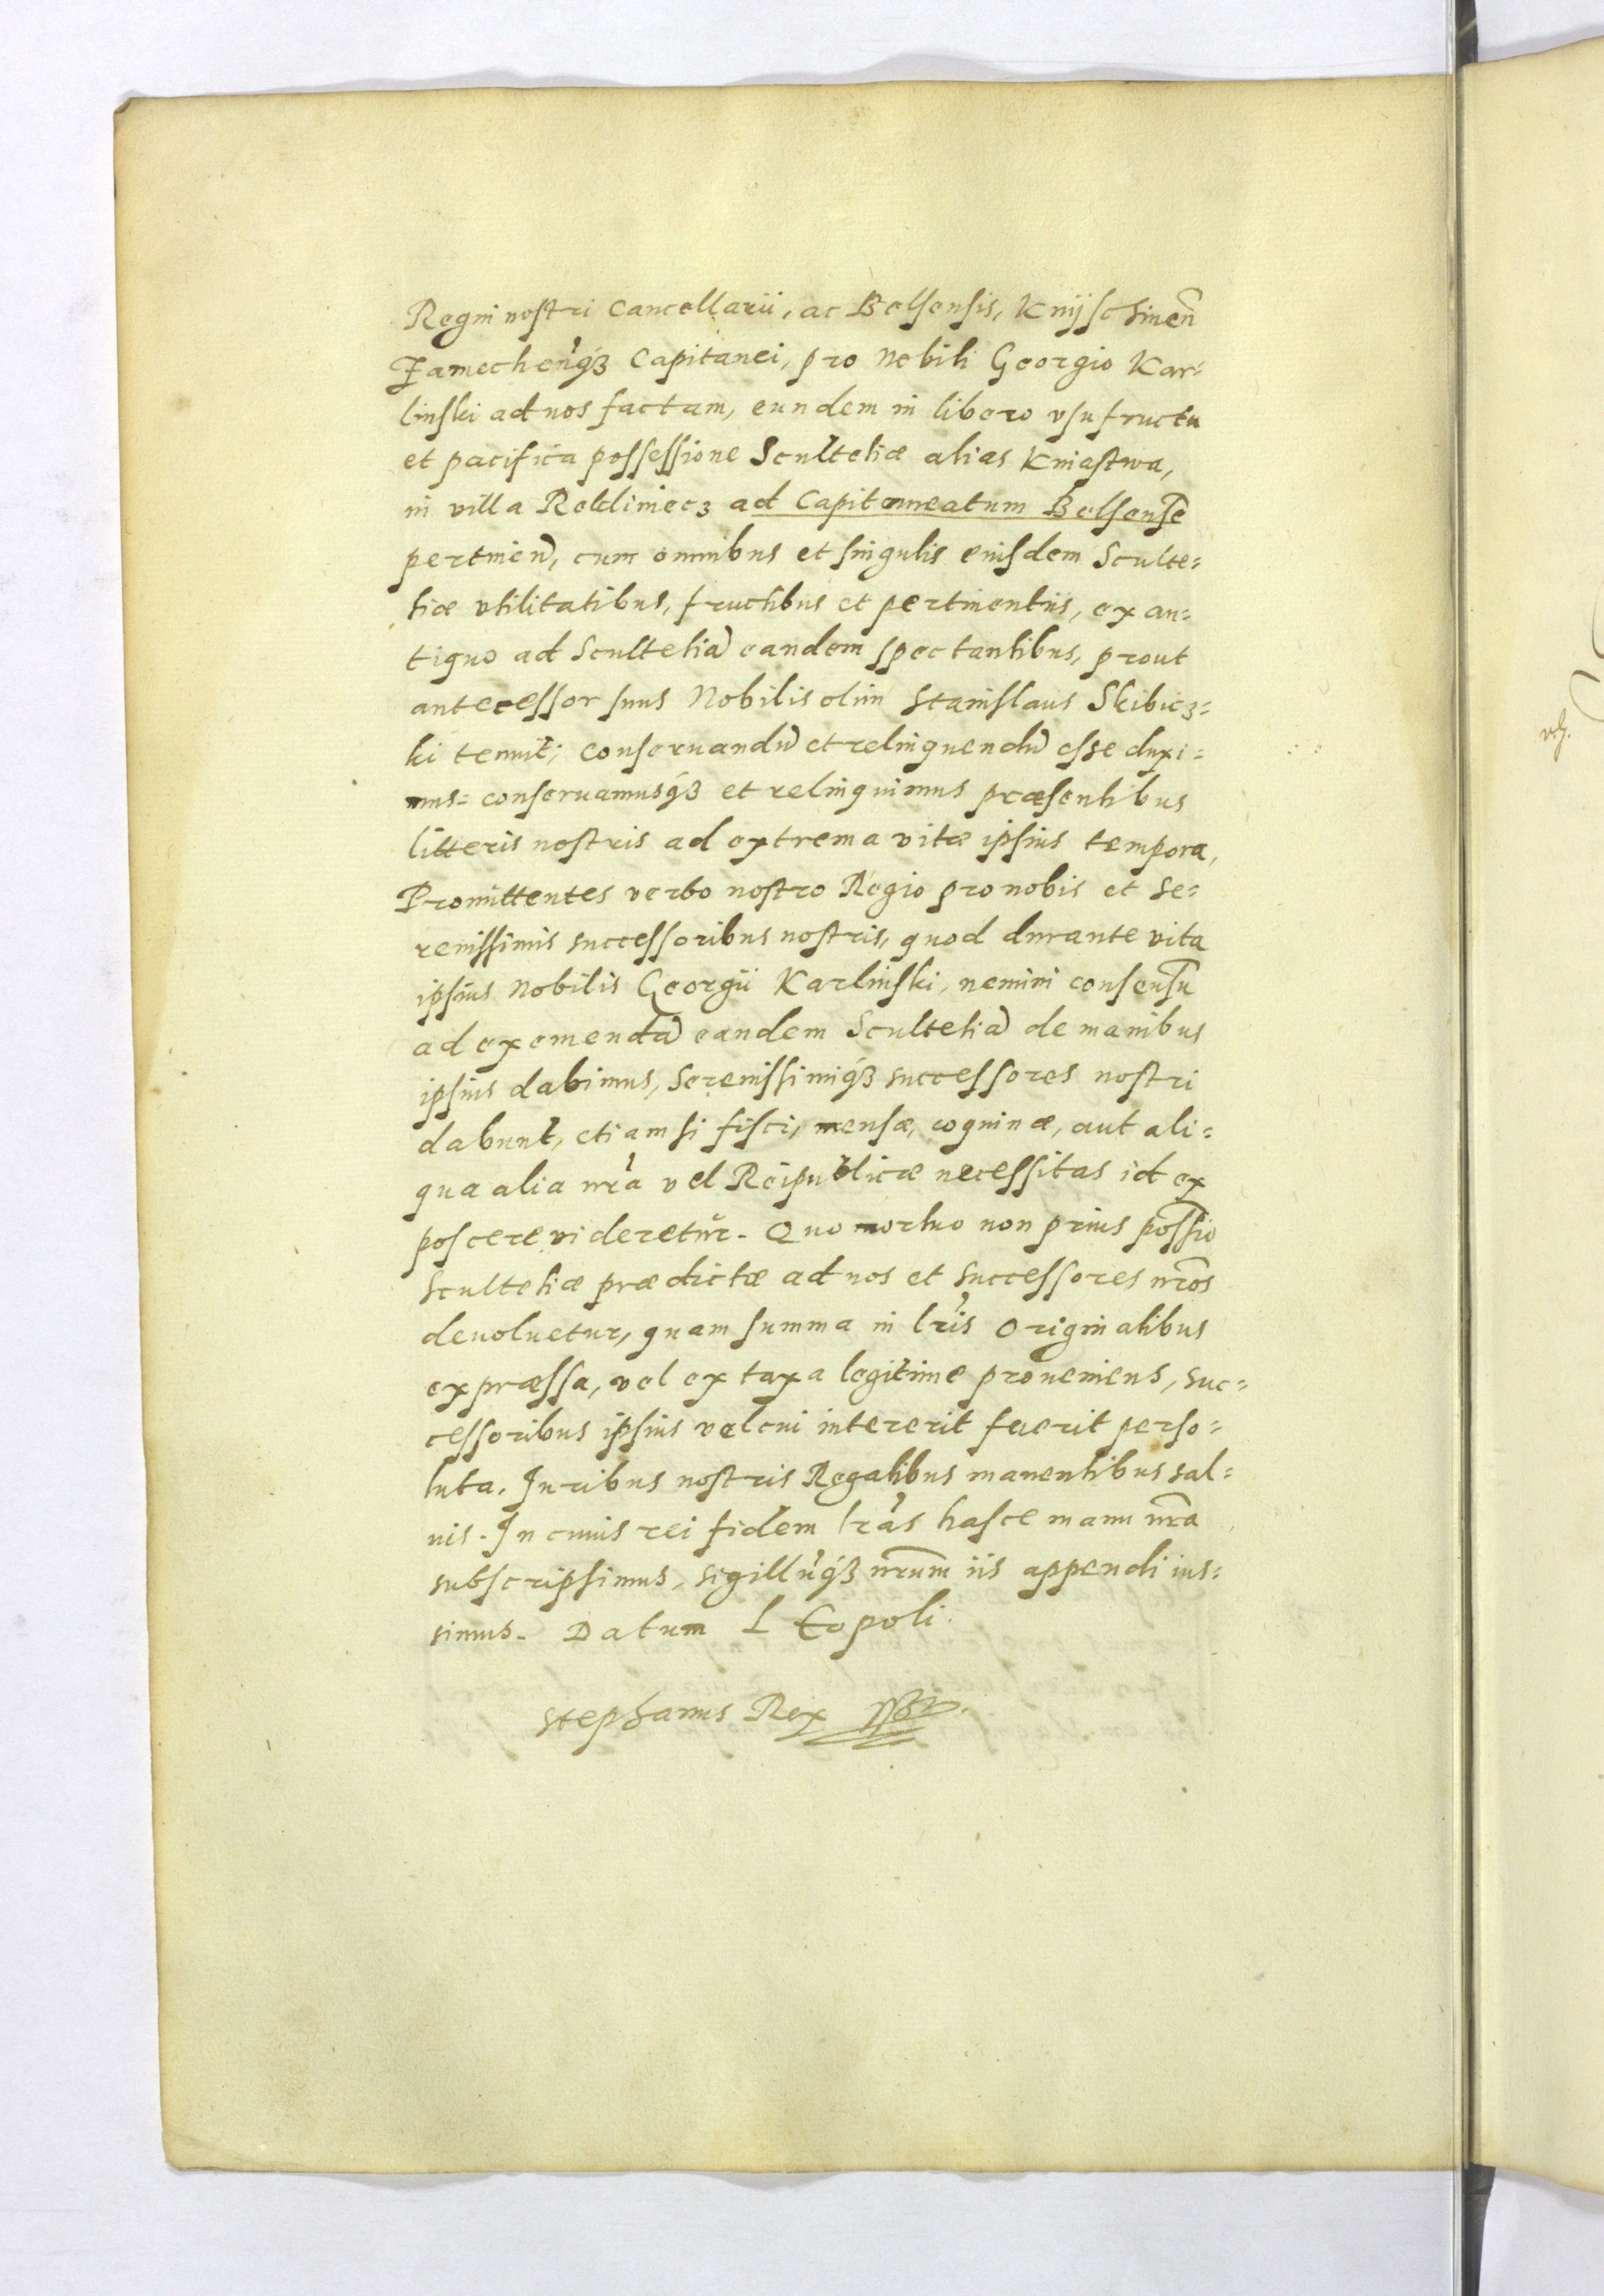 Regni nostri Cancellarii, ac Belsensis, Knijschinen̄
Zamechen̉q́ꝫ Capitanei, pro Nobili Georgio Kar=
linski ad nos factam, eundem in libero vsufructu
et pacifica possessione Scultetiæ alias Kniastwa,
in villa Rekliniecz ad Capitaneatum Belsense̅
pertinen̄, cum omnibus et singulis eiusdem Sculte=
tiæ vtilitatibus, fructibus et pertinentiis, ex an=
tiquo ad Scultetiā eandem spectantibus, prout
antecessor suus Nobilis olim Stanislaus Skibicz=
ki tenuit; conseruandū et relinquendū esse duxi=
mus= conseruamusq́ꝫ et relinquimus præsentibus
litteris nostris ad extrema vitæ ipsius tempora,
Promittentes verbo nostro Regio pro nobis et Se=
renissimis successoribus nostris, quod durante vita
ipsius Nobilis Georgii Karlinski, nemini consensū
ad exemendā eandem Scultetiā de manibus
ipsius dabimus, Serenissimiq́ꝫ successores nostri
dabunt, etiam si fisci, mensæ, coquinæ, aut ali=
qua alia nr̉a vel Reipublicæ necessitas id ex
poscere videretur. Quo mortuo non prius possio̅
Scultetiæ prædictæ ad nos et Successores nr̄os
deuoluetur, quam summa in lr̉is Originalibus
expræssa, vel ex taxa legitime proueniens, suc=
cessoribus ipsius vel cui intererit fuerit perso=
luta. Juribus nostris Regalibus manentibus sal=
uis. In cuius rei fidem lr̉as hasce manu nr̄a
subscripsimus, sigillūq́ꝫ nr̄um iis appendi ius=
simus. Datum LEopoli.
Stephanus Rex